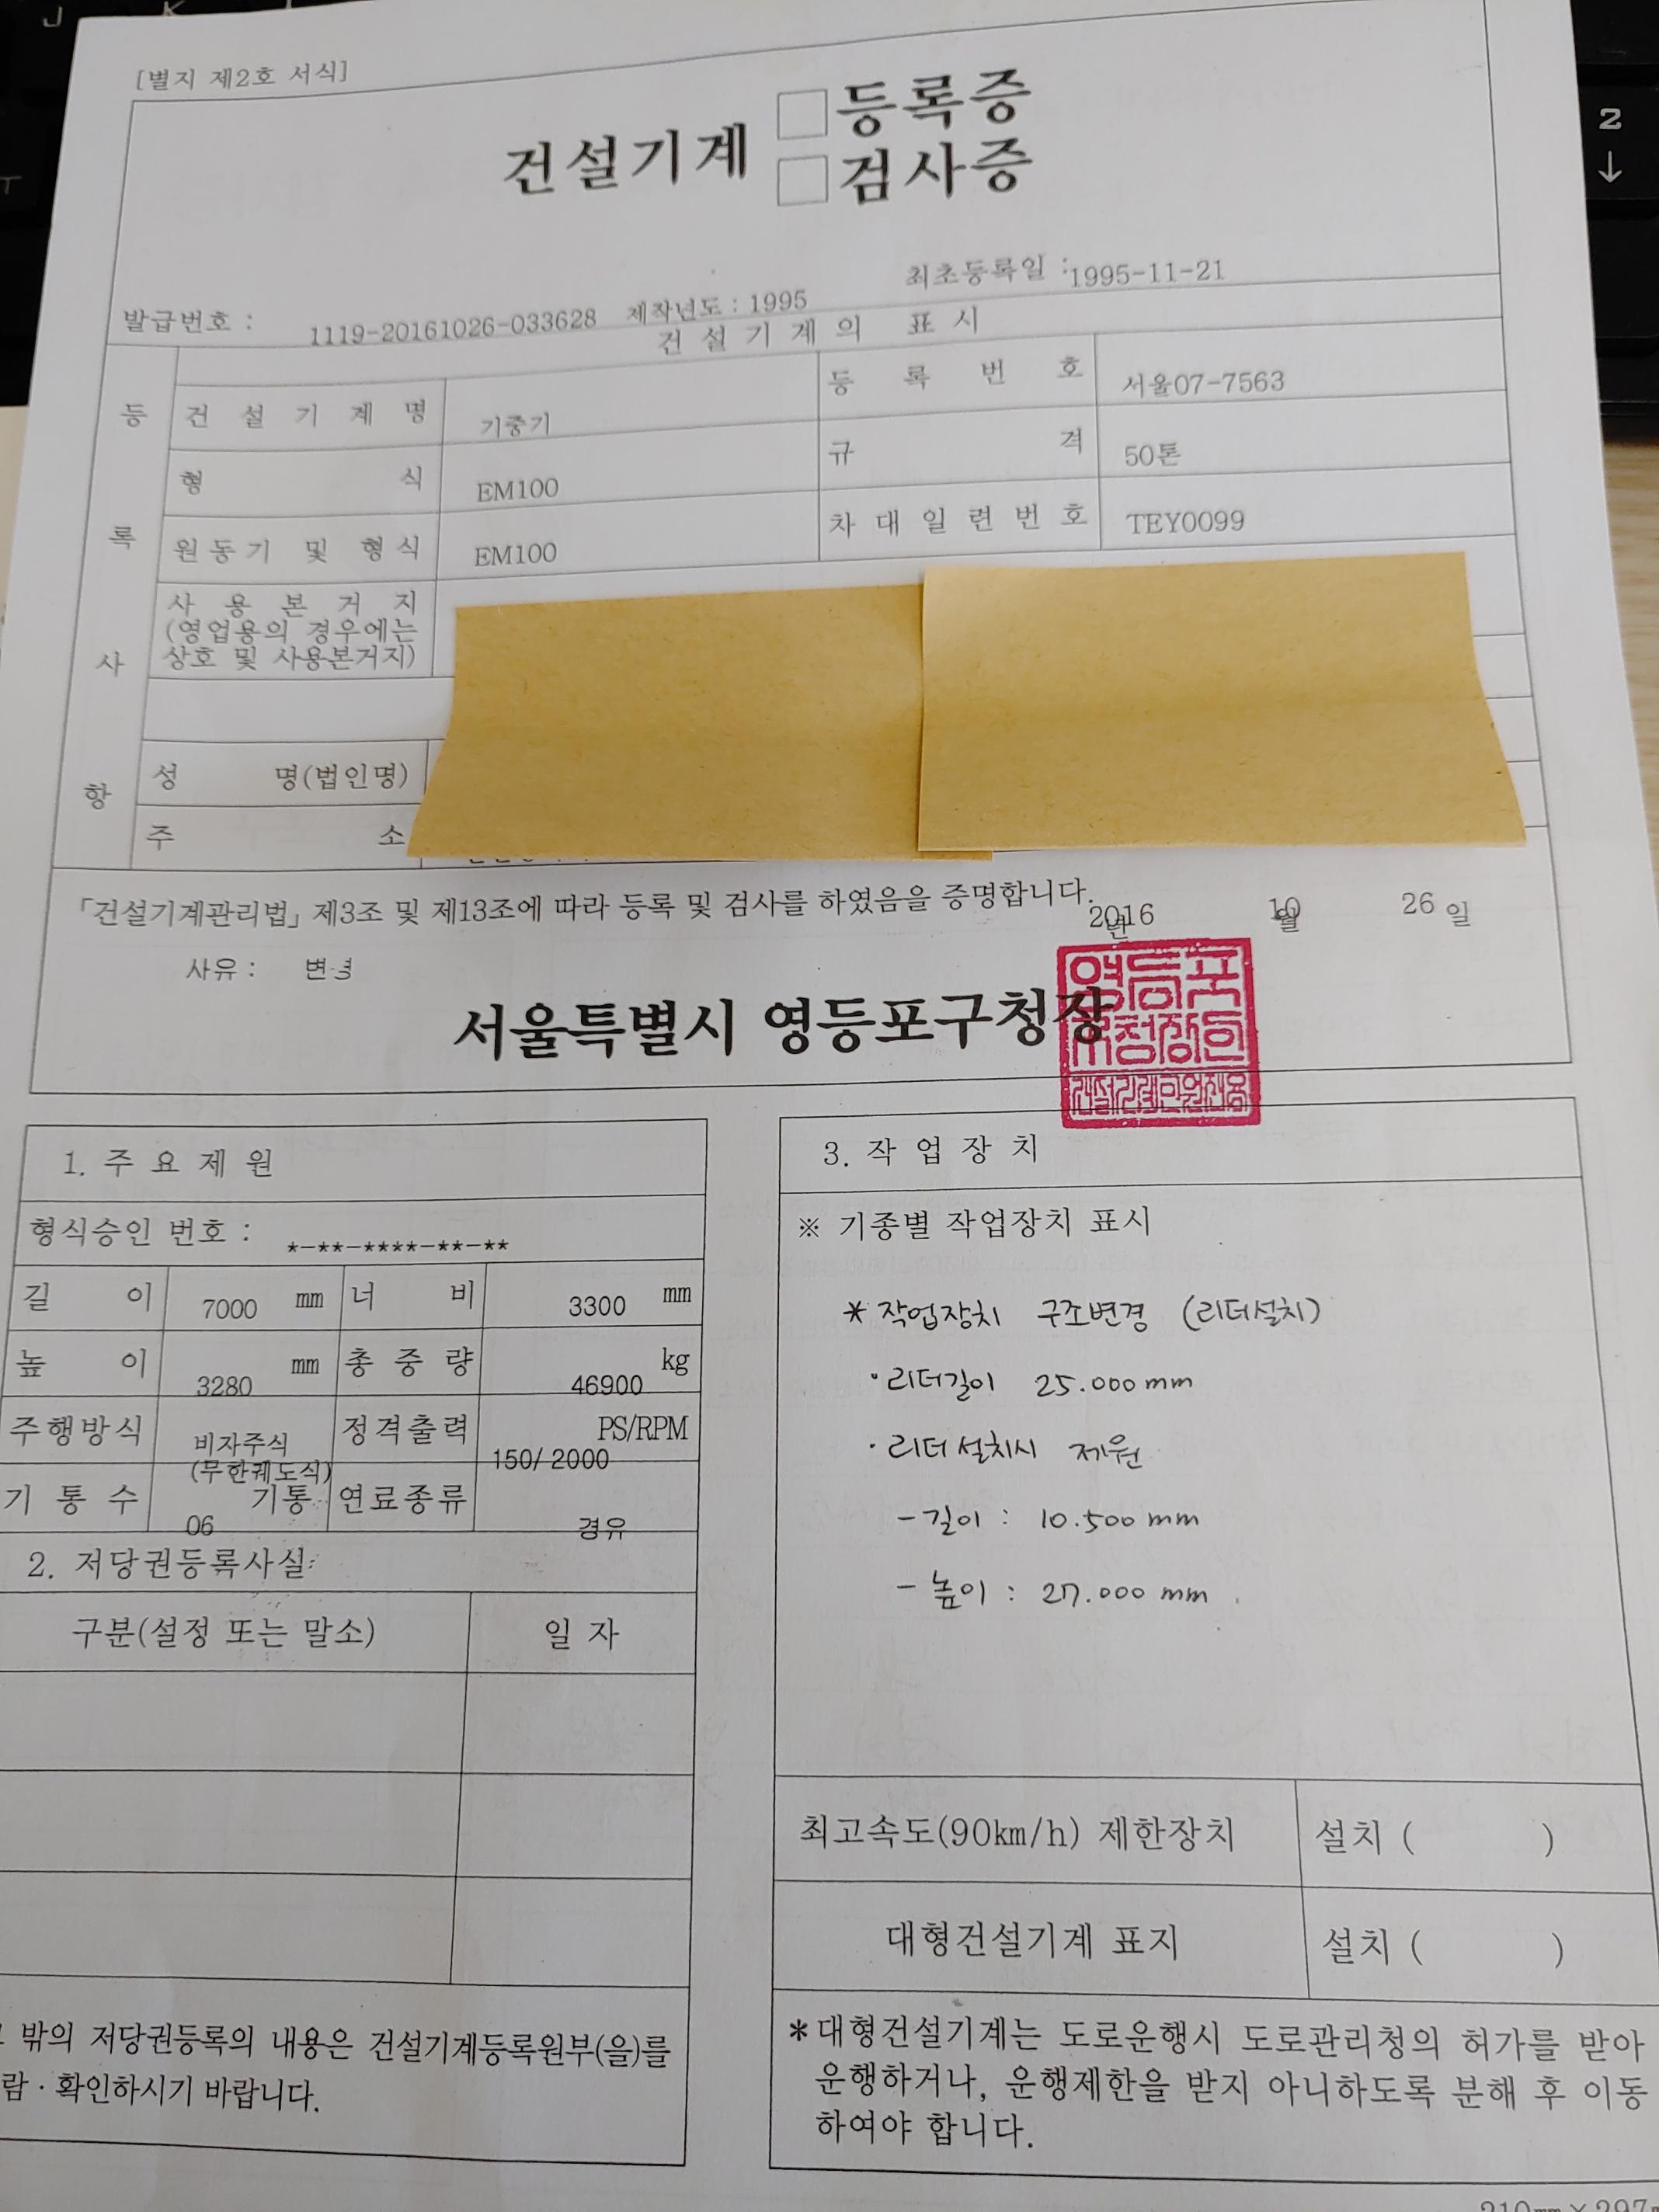 [별지 제2호 서식]
건설기계 □등록증
□검사증
발급번호 : 1119-20161026-033628 제작년도 : 1995 최초등록일 : 1995-11-21
건 설 기 계 의 표 시
등 록 사 항
건 설 기 계 명 기중기 등 록 번 호 서울07-7563
형 식 EM100 규 격 50톤
원동기 및 형식 EM100 차 대 일 련 번 호 TEY0099
사 용 본 거 지
(영업용의 경우에는
상호 및 사용본거지)
성 명(법인명)
주 소
「건설기계관리법」 제3조 및 제13조에 따라 등록 및 검사를 하였음을 증명합니다.
2016 년 10 월 26 일
사유 : 변경
서울특별시 영등포구청장
영등포
구청장인
1. 주 요 제 원
형식승인 번호 : *-**-****-**-**
길 이 7000 mm 너 비 3300 mm
높 이 3280 mm 총 중 량 46900 kg
주행방식 비자주식 (무한궤도식) 정격출력 150/ 2000 PS/RPM
기 통 수 06 기통 연료종류 경유
2. 저당권등록사실
구분(설정 또는 말소) 일 자
밖의 저당권등록의 내용은 건설기계등록원부(을)를
람 · 확인하시기 바랍니다.
3. 작 업 장 치
※ 기종별 작업장치 표시
* 작업장치 구조변경 (리더설치)
· 리더길이 25.000 mm
· 리더설치시 제원
- 길이 : 10.500 mm
- 높이 : 27.000 mm
최고속도(90km/h) 제한장치 설치 ( )
대형건설기계 표지 설치 ( )
* 대형건설기계는 도로운행시 도로관리청의 허가를 받아
운행하거나, 운행제한을 받지 아니하도록 분해 후 이동
하여야 합니다.
J
K
T
2
↓